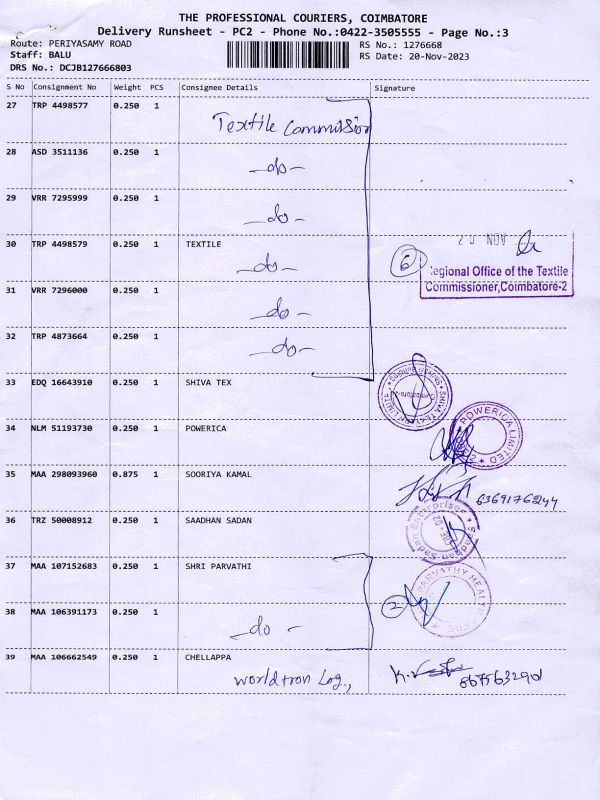 THE PROFESSIONAL COURIERS, COIMBATORE
Delivery Runsheet - PC2 - Phone No.:0422-3505555 - Page No.:3
Route: PERIYASAMY ROAD
RS No.: 1276668
Staff: BALU
RS Date: 20-Nov-2023
DRS No.: DCJB127666803
S No Consignment No Weight PCS Consignee Details Signature
27 TRP 4498577 0.250 1
Textile Commission
28 ASD 3511136 0.250 1
-do-
29 VRR 7295999 0.250 1
-do-
30 TRP 4498579 0.250 1 TEXTILE
20 NOV
-do-
6
Regional Office of the Textile
Commissioner,Coimbatore-2
31 VRR 7296000 0.250 1
-do-
32 TRP 4873664 0.250 1
-do-
33 EDQ 16643910 0.250 1 SHIVA TEX
34 NLM 51193730 0.250 1 POWERICA
POWERICA LIMITED
35 MAA 298093960 0.875 1 SOORIYA KAMAL
6369176244
36 TRZ 50008912 0.250 1 SAADHAN SADAN
Saadhan Sadan Enterprises
37 MAA 107152683 0.250 1 SHRI PARVATHI
PARVATHY HEALTH
2
38 MAA 106391173 0.250 1
-do-
39 MAA 106662549 0.250 1 CHELLAPPA
Worldtron Log.,